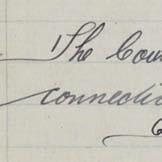 The Cou
connecti